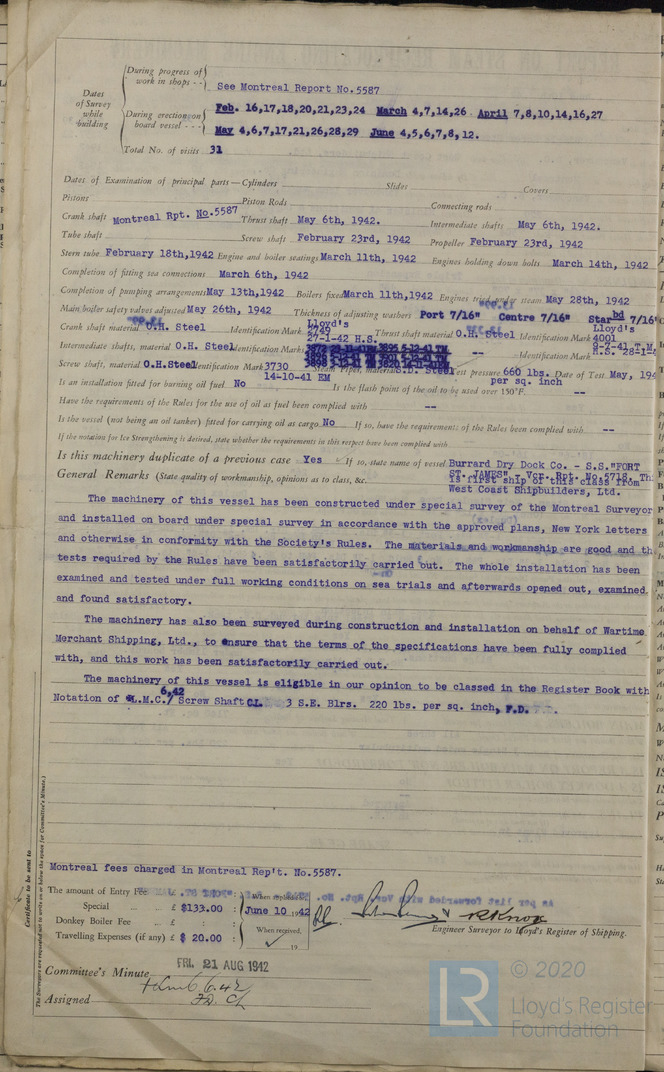 Dates of Survey while building
During progress of work in shops - - See Montreal Report No.5587
During erection on board vessel - - - Feb. 16,17,18,20,21,23,24 March 4,7,14,26 April 7,8,10,14,16,27
May 4,6,7,17,21,26,28,29 June 4,5,6,7,8,12.
Total No. of visits 31
Dates of Examination of principal parts—Cylinders Slides Covers
Pistons Piston Rods Connecting rods
Crank shaft Montreal Rpt. No.5587 Thrust shaft May 6th, 1942. Intermediate shafts May 6th, 1942.
Tube shaft Screw shaft February 23rd, 1942 Propeller February 23rd, 1942
Stern tube February 18th,1942 Engine and boiler seatings March 11th, 1942 Engines holding down bolts March 14th, 1942
Completion of fitting sea connections March 6th, 1942
Completion of pumping arrangements May 13th,1942 Boilers fixed March 11th,1942 Engines tried under steam May 28th, 1942
Main boiler safety valves adjusted May 26th, 1942 Thickness of adjusting washers Port 7/16" Centre 7/16" Starbd 7/16"
Crank shaft material O.H. Steel Identification Mark Lloyd's 2749 27-1-42 H.S. Thrust shaft material O.H. Steel Identification Mark Lloyd's 4001 9-7-41 T.M.
Intermediate shafts, material O.H. Steel Identification Marks -- Identification Mark H.S. 28-1-
Screw shaft, material O.H.Steel Identification Mark 3730 14-10-41 EM Steam Pipes, material S.D. Steel Test pressure 660 lbs. per sq. inch Date of Test May, 194
Is an installation fitted for burning oil fuel No Is the flash point of the oil to be used over 150°F. --
Have the requirements of the Rules for the use of oil as fuel been complied with --
Is the vessel (not being an oil tanker) fitted for carrying oil as cargo No If so, have the requirements of the Rules been complied with --
If the notation for Ice Strengthening is desired, state whether the requirements in this respect have been complied with
Is this machinery duplicate of a previous case Yes If so, state name of vessel Burrard Dry Dock Co. - S.S."FORT
ST. JAMES" - Vcr. Rpt. No.2718. Thi
General Remarks (State quality of workmanship, opinions as to class, &c. is first ship of this class from
West Coast Shipbuilders, Ltd.
The machinery of this vessel has been constructed under special survey of the Montreal Surveyor
and installed on board under special survey in accordance with the approved plans, New York letters
and otherwise in conformity with the Society's Rules. The materials and workmanship are good and th
tests required by the Rules have been satisfactorily carried out. The whole installation has been
examined and tested under full working conditions on sea trials and afterwards opened out, examined
and found satisfactory.
The machinery has also been surveyed during construction and installation on behalf of Wartime
Merchant Shipping, Ltd., to ensure that the terms of the specifications have been fully complied
with, and this work has been satisfactorily carried out.
The machinery of this vessel is eligible in our opinion to be classed in the Register Book with
Notation of L.M.C. 6,42 / Screw Shaft C.L. 3 S.E. Blrs. 220 lbs. per sq. inch, F.D.
Certificate to be sent to
(The Surveyors are requested not to write on or below the space for Committee's Minute.)
Montreal fees charged in Montreal Rep't. No.5587.
The amount of Entry Fee £ : : When applied for,
Special ... ... £ $133.00 : June 10 1942
Donkey Boiler Fee ... £ : : When received,
Travelling Expenses (if any) £ $ 20.00 : 19
R Knox
Engineer Surveyor to Lloyd's Register of Shipping.
Committee's Minute FRI. 21 AUG 1942
Assigned + LMC 6.42
FD. CL
© 2020
LR
Lloyd's Register
Foundation